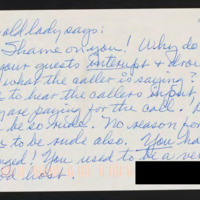 old lady says:
Shame on you! Why do
your guests interupt & drow
what the caller is saying?
to hear the callers input
are paying for the call.
be so rude. No reason for
to be rude also. You ha
nged! You used to be a ve
od host!